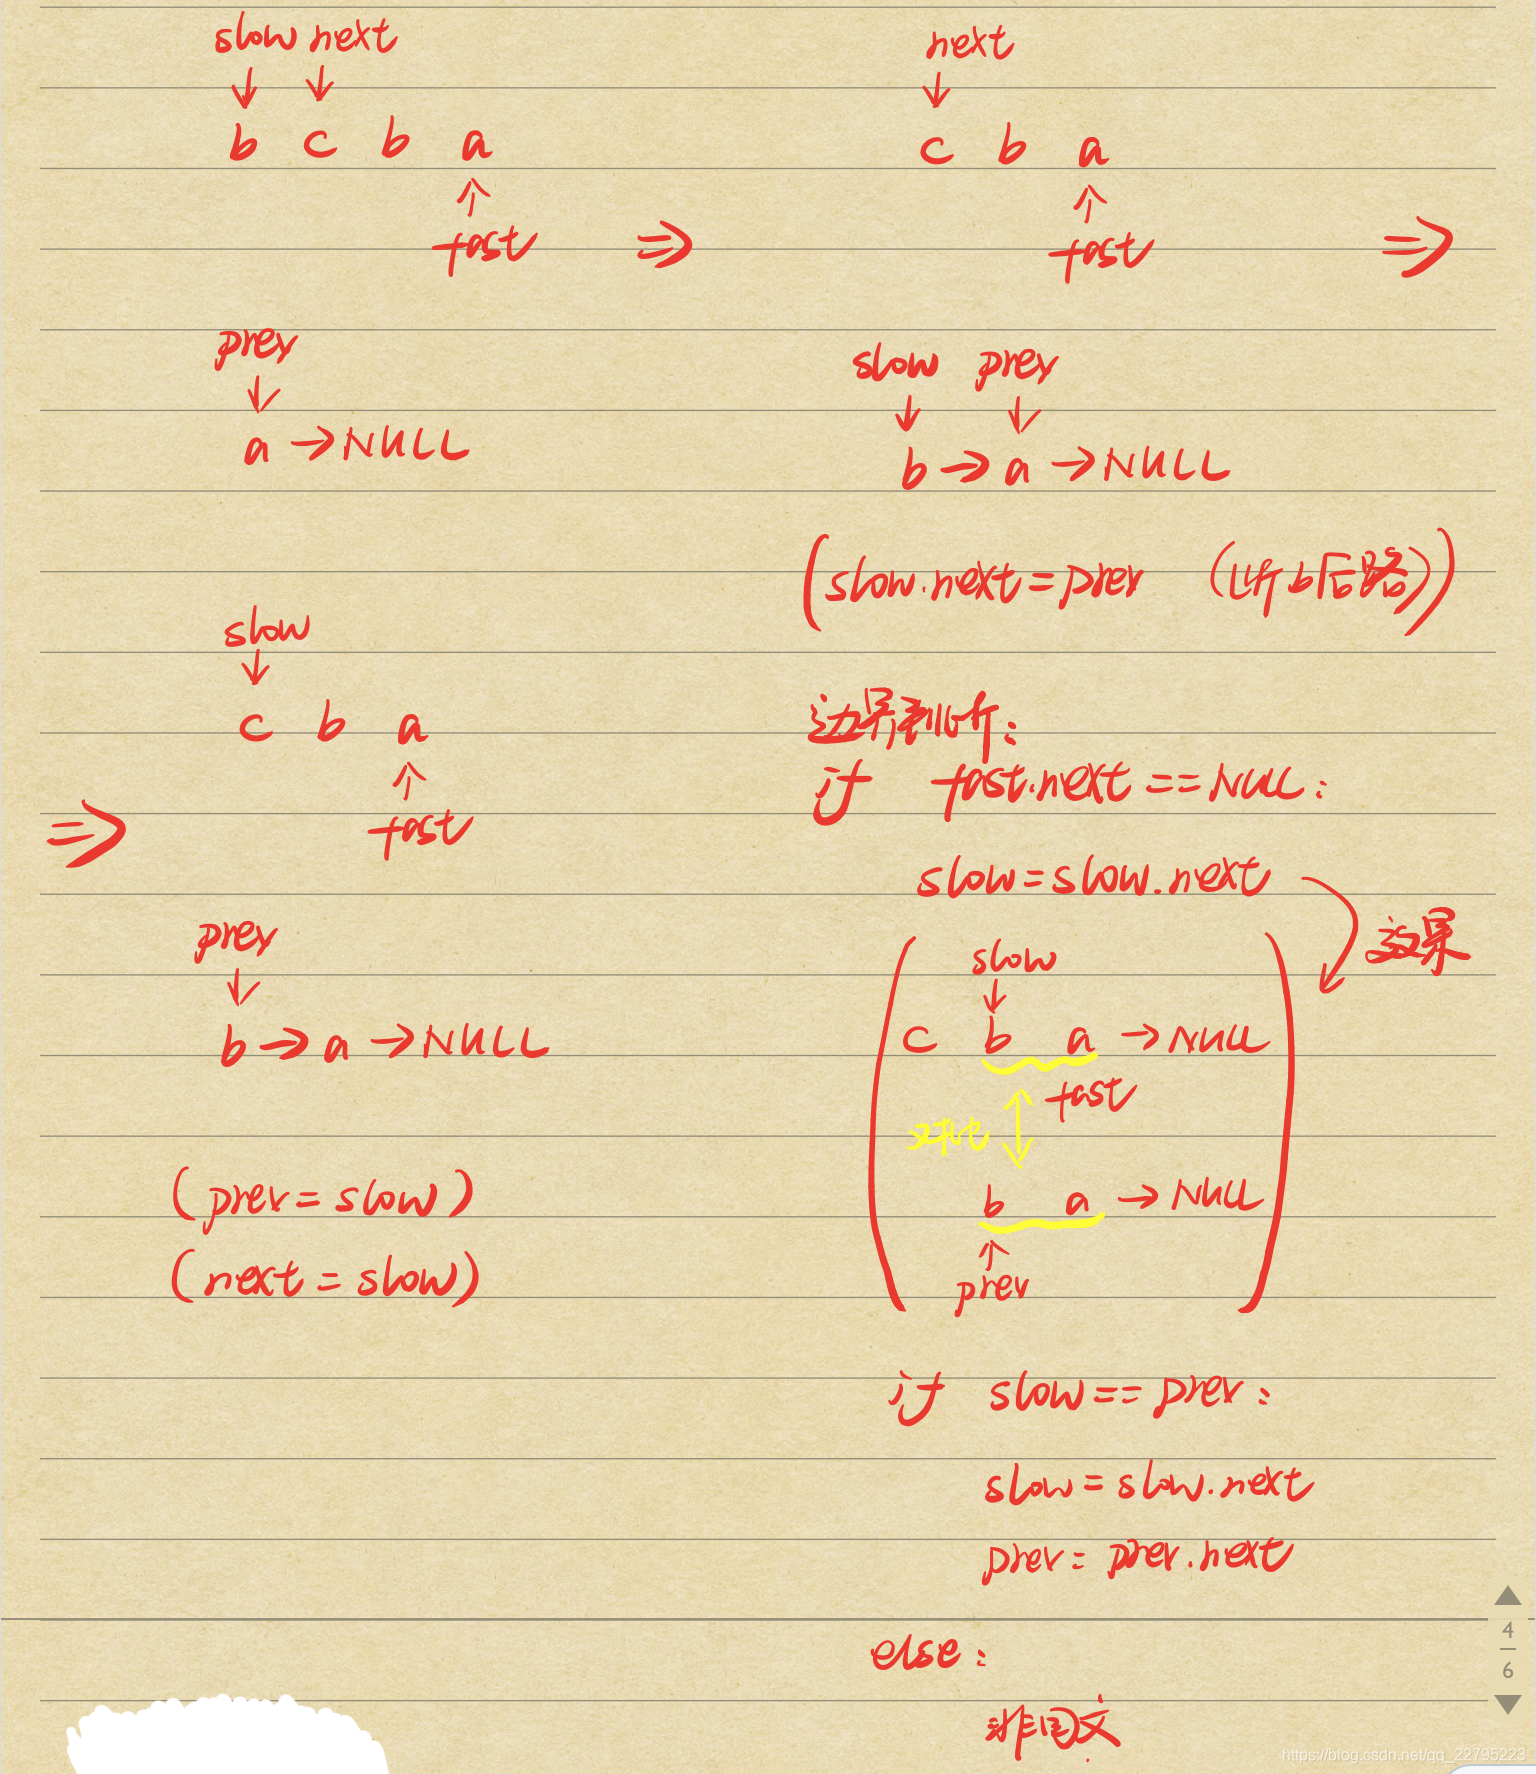 slow next
b c b a
fast
prev
a → NULL
next
c b a
fast
slow prev
b → a → NULL
(slow.next = prev (断b后路))
slow
c b a
fast
prev
b → a → NULL
(prev = slow)
(next = slow)
边界判断:
if fast.next == NULL:
slow = slow.next
效果
slow
c b a → NULL
fast
对比
b a → NULL
prev
if slow == prev:
slow = slow.next
prev = prev.next
else:
非回文
4
6
https://blog.csdn.net/qq_22795223